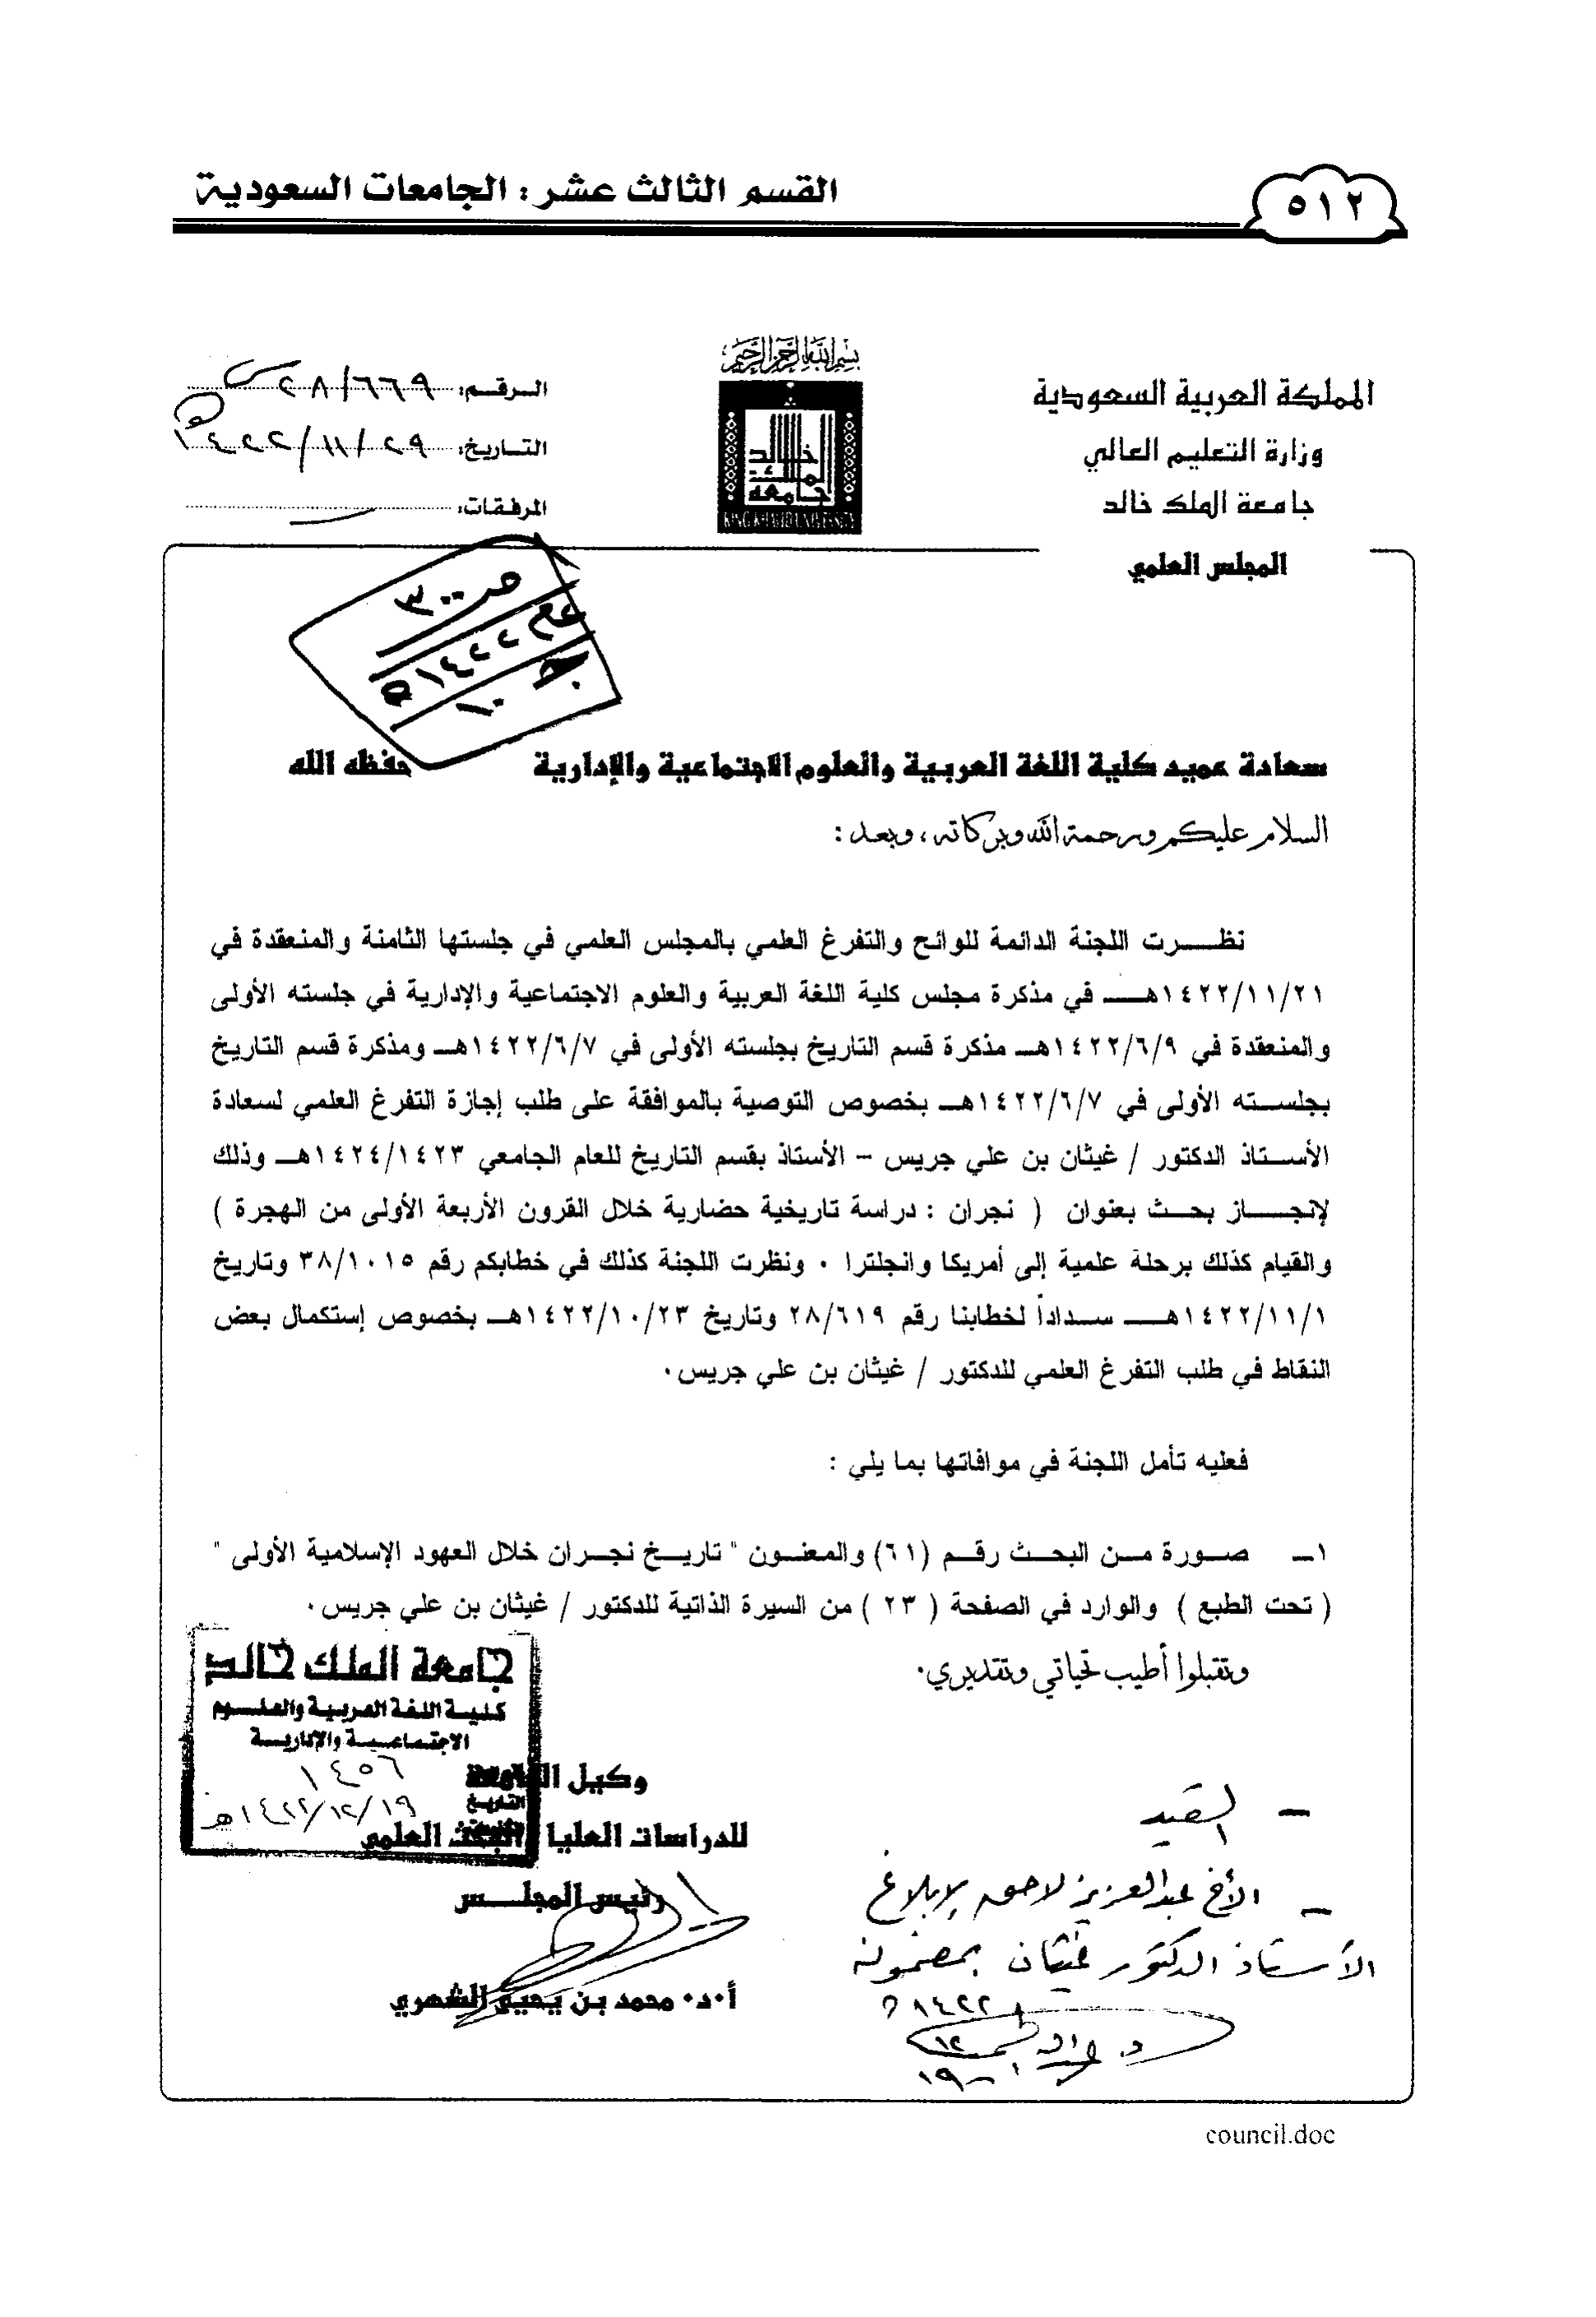 القسم الثالث عشر: الجامعات السعودية
٥١٢
بسم الله الرحمن الرحيم
المملكة العربية السعودية
وزارة التعليم العالي
جامعة الملك خالد
المجلس العلمي
جامعة الملك خالد
KING KHALID UNIVERSITY
الرقم: ٢٨/٦٦٩
التاريخ: ١٤٢٢/١١/٢٩هـ
المرفقات:
ص ٣٠٠
١٤٢٢هـ
١٠
سعادة عميد كلية اللغة العربية والعلوم الاجتماعية والإدارية حفظه الله
السلام عليكم ورحمة الله وبركاته، وبعد:
نظـــرت اللجنة الدائمة للوائح والتفرغ العلمي بالمجلس العلمي في جلستها الثامنة والمنعقدة في
١٤٢٢/١١/٢١هـــ في مذكرة مجلس كلية اللغة العربية والعلوم الاجتماعية والإدارية في جلسته الأولى
والمنعقدة في ١٤٢٢/٦/٩هـ مذكرة قسم التاريخ بجلسته الأولى في ١٤٢٢/٦/٧هـ ومذكرة قسم التاريخ
بجلسـته الأولى في ١٤٢٢/٦/٧هـ بخصوص التوصية بالموافقة على طلب إجازة التفرغ العلمي لسعادة
الأسـتاذ الدكتور / غيثان بن علي جريس – الأستاذ بقسم التاريخ للعام الجامعي ١٤٢٤/١٤٢٣هـ وذلك
لإنجـــاز بحـث بعنوان ( نجران : دراسة تاريخية حضارية خلال القرون الأربعة الأولى من الهجرة )
والقيام كذلك برحلة علمية إلى أمريكا وانجلترا ٠ ونظرت اللجنة كذلك في خطابكم رقم ٣٨/١٠١٥ وتاريخ
١٤٢٢/١١/١هـــ سـداداً لخطابنا رقم ٢٨/٦١٩ وتاريخ ١٤٢٢/١٠/٢٣هـ بخصوص إستكمال بعض
النقاط في طلب التفرغ العلمي للدكتور / غيثان بن علي جريس ٠
فعليه تأمل اللجنة في موافاتها بما يلي :
١ــ صـورة مـن البحـث رقـم (٦١) والمعنـون " تاريـخ نجـران خلال العهود الإسلامية الأولى "
( تحت الطبع ) والوارد في الصفحة ( ٢٣ ) من السيرة الذاتية للدكتور / غيثان بن علي جريس ٠
وتقبلوا أطيب تحياتي وتقديري٠
جامعة الملك خالد
كليـة اللغـة العربيـة والعلـــوم
الاجتمـاعيـــة والإداريـــة
١٤٥٦
التاريخ ١٤٢٢/١٢/١٩هـ
وكيل الجامعة
للدراسات العليا والبحث العلمي
رئيس المجلــــس
أ٠د٠ محمد بن يحيى الشهري
– القيد
– الأخ عبدالعزيز لاحق لإبلاغ
الأستاذ الدكتور غيثان بمضمونه
١٤٢٢هـ
١٢
١٩
council.doc